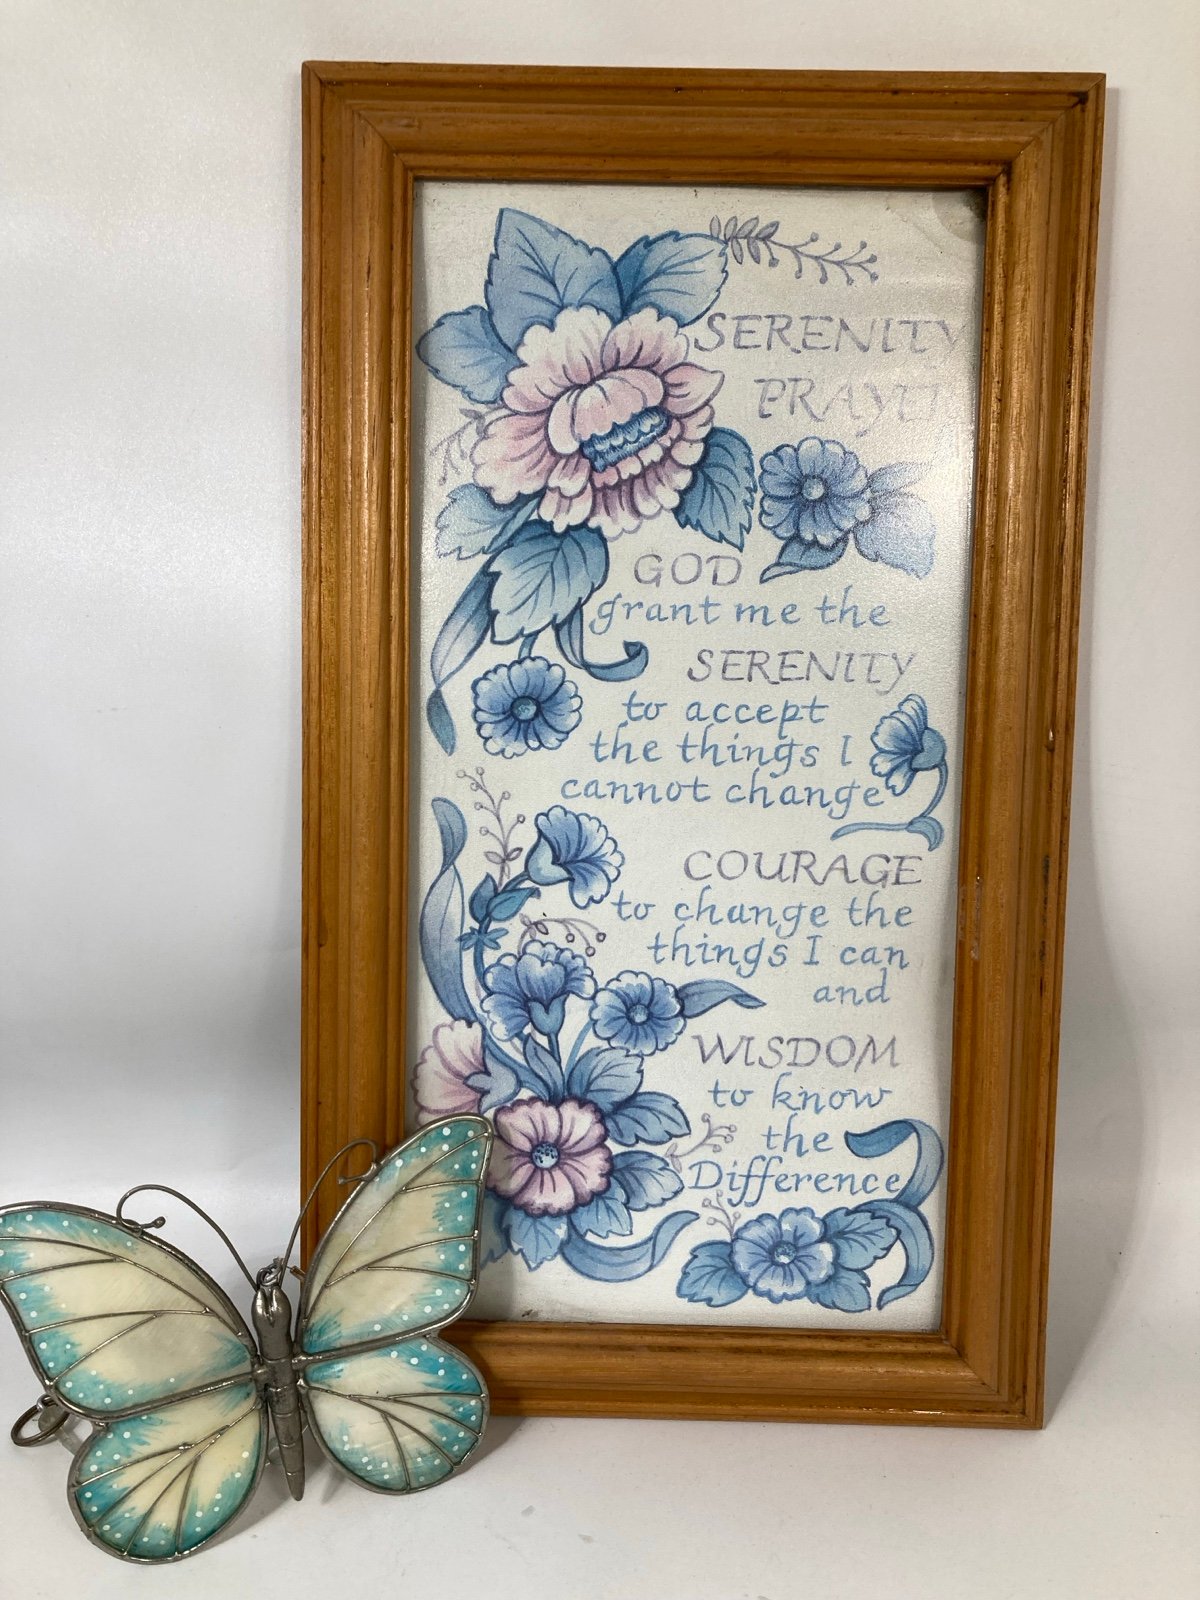 SERENITY
PRAYER
GOD
grant me the
SERENITY
to accept
the things I
cannot change
COURAGE
to change the
things I can
and
WISDOM
to know
the
Difference